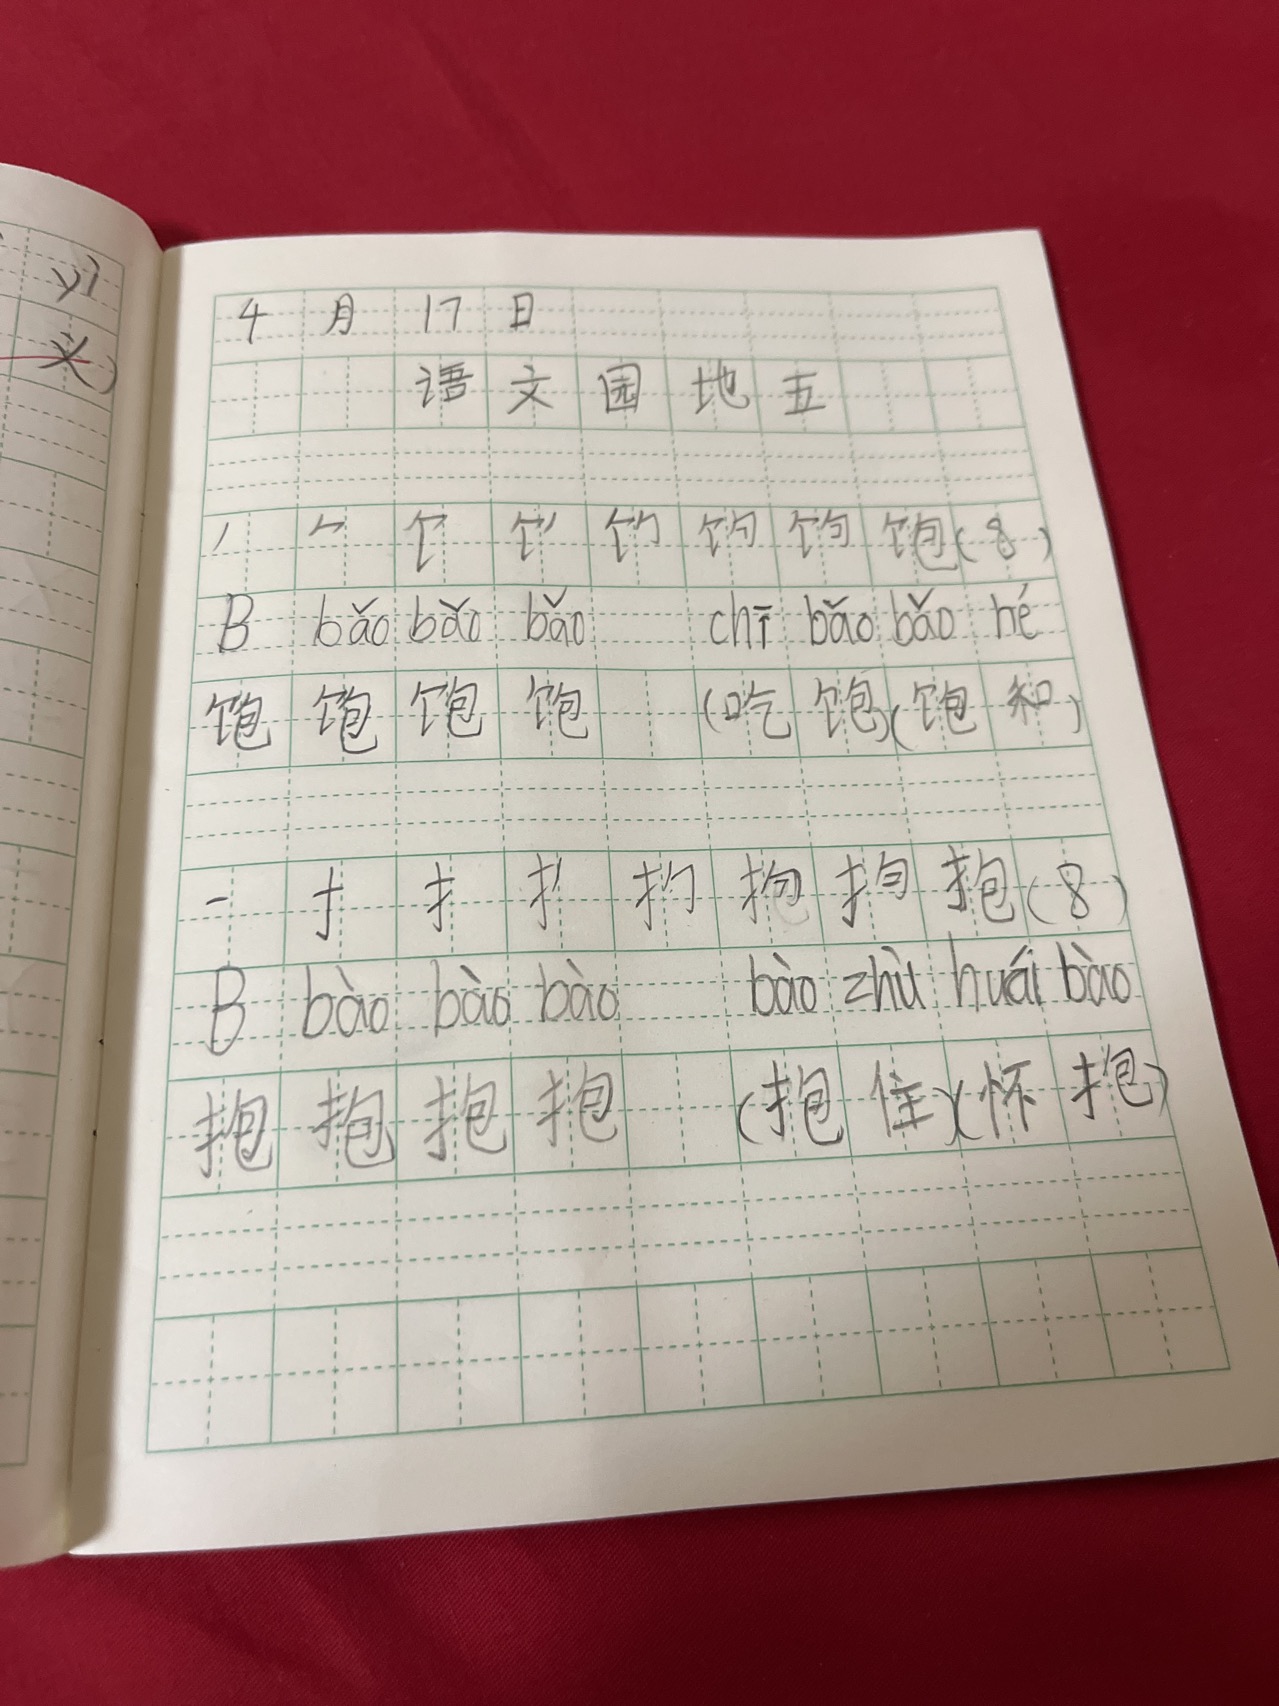 yì
义)
4月17日
语文园地五
丿 𠂉 饣 饣丿 饣勹 饣㔾 饣句 饱(8)
B bǎo bǎo bǎo chī bǎo bǎo hé
饱 饱 饱 饱 (吃饱)(饱和)
一 扌 扌 扌丿 扌勹 抅 抅 抱(8)
B bào bào bào bào zhù huái bào
抱 抱 抱 抱 (抱住)(怀抱)